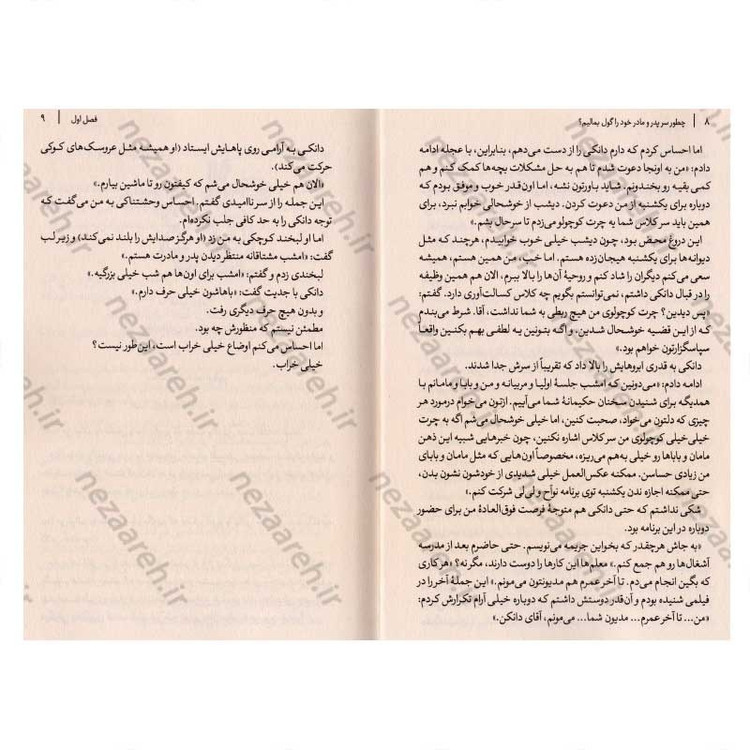 ۸ | چطور سر پدر و مادر خود را گول بمالیم؟
اما احساس کردم که دارم دانکی را از دست می‌دهم، بنابراین، با عجله ادامه
دادم: «من به اونجا دعوت شدم تا هم به حل مشکلات بچه‌ها کمک کنم و هم
کمی بقیه رو بخندونم. شاید باورتون نشه، اما اون‌قدر خوب و موفق بودم که
دوباره برای یکشنبه از من دعوت کردن. دیشب از خوشحالی خوابم نبرد، برای
همین باید سر کلاس شما یه چرت کوچولو می‌زدم تا سرحال بشم.»
این دروغ محض بود، چون دیشب خیلی خوب خوابیدم، هرچند که مثل
دیوانه‌ها برای یکشنبه هیجان‌زده هستم. اما خب، من همین هستم، همیشه
سعی می‌کنم دیگران را شاد کنم و روحیهٔ آن‌ها را بالا ببرم. الان هم همین وظیفه
را در قبال دانکی داشتم، نمی‌توانستم بگویم چه کلاس کسالت‌آوری دارد. گفتم:
«پس دیدین؟ چرت کوچولوی من هیچ ربطی به شما نداشت، آقا. شرط می‌بندم
که از این قضیه خوشحال شدین، و اگه بتونین یه لطفی بهم بکنین واقعاً
سپاسگزارتون خواهم بود.»
دانکی به قدری ابروهایش را بالا داد که تقریباً از سرش جدا شدند.
ادامه دادم: «می‌دونین که امشب جلسهٔ اولیا و مربیانه و من و بابا و مامانم با
همدیگه برای شنیدن سخنان حکیمانهٔ شما می‌آییم. ازتون می‌خوام درمورد هر
چیزی که دلتون می‌خواد، صحبت کنین، اما خیلی خوشحال می‌شم اگه به چرت
خیلی‌خیلی کوچولوی من سر کلاس اشاره نکنین، چون خبرهایی شبیه این ذهن
مامان و باباها رو خیلی به‌هم می‌ریزه، مخصوصاً اون‌هایی که مثل مامان و بابای
من زیادی حساسن. ممکنه عکس‌العمل خیلی شدیدی از خودشون نشون بدن،
حتی ممکنه اجازه ندن یکشنبه توی برنامه نوآح و لی‌لی شرکت کنم.»
شکی نداشتم که حتی دانکی هم متوجهٔ فرصت فوق‌العادهٔ من برای حضور
دوباره در این برنامه بود.
«به جاش هرچقدر که بخواین جریمه می‌نویسم. حتی حاضرم بعد از مدرسه
آشغال‌ها رو هم جمع کنم.» معلم‌ها این کارها را دوست دارند، مگر نه؟ «هر کاری
که بگین انجام می‌دم. تا آخر عمرم هم مدیونتون می‌مونم.» این جملهٔ آخر را در
فیلمی شنیده بودم و آن‌قدر دوستش داشتم که دوباره خیلی آرام تکرارش کردم:
«من... تا آخر عمرم... مدیون شما... می‌مونم، آقای دانکن.»
فصل اول | ۹
دانکی به آرامی روی پاهایش ایستاد (او همیشه مثل عروسک‌های کوکی
حرکت می‌کند).
«الان هم خیلی خوشحال می‌شم که کیفتون رو تا ماشین بیارم.»
این جمله را از سر ناامیدی گفتم. احساس وحشتناکی به من می‌گفت که
توجه دانکی را به حد کافی جلب نکرده‌ام.
اما او لبخند کوچکی به من زد (او هرگز صدایش را بلند نمی‌کند) و زیر لب
گفت: «امشب مشتاقانه منتظر دیدن پدر و مادرت هستم.»
لبخندی زدم و گفتم: «امشب برای اون‌ها هم شب خیلی بزرگیه.»
دانکی با جدیت گفت: «باهاشون خیلی حرف دارم.»
و بدون هیچ حرف دیگری رفت.
مطمئن نیستم که منظورش چه بود.
اما احساس می‌کنم اوضاع خیلی خراب است، این‌طور نیست؟
خیلی خراب.
nezaareh.ir
nezaareh.ir
nezaareh.ir
nezaareh.ir
nezaareh.ir
nezaareh.ir